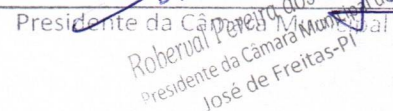 Presidente da Câmara Municipal
Roberval Pereira dos
Presidente da Câmara Municipal de
José de Freitas-PI